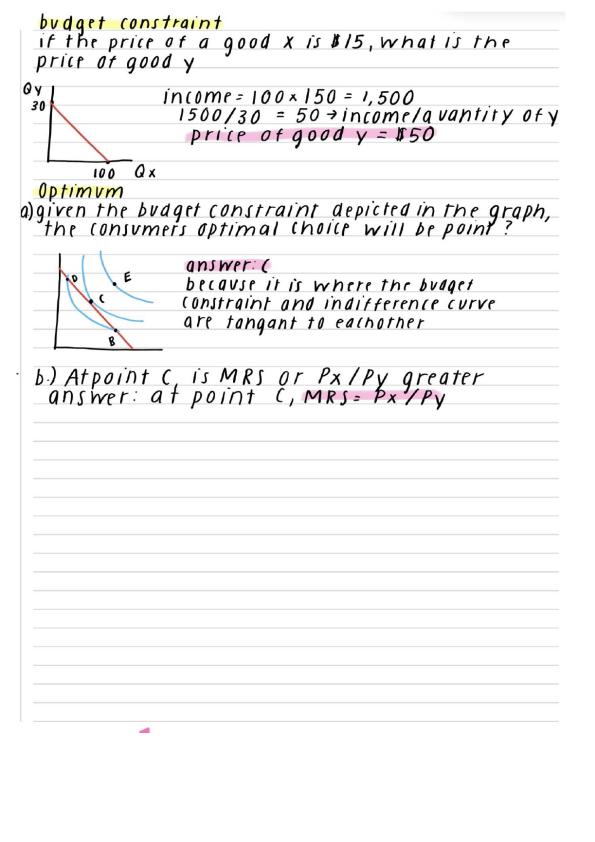 budget constraint
if the price of a good x is $15, what is the
price of good y
Qy
30
100 Qx
income = 100 x 150 = 1,500
1500/30 = 50 → income/quantity of y
price of good y = $50
Optimum
a) given the budget constraint depicted in the graph,
the consumers optimal choice will be point ?
D
E
C
B
answer: C
because it is where the budget
constraint and indifference curve
are tangant to eachother
b.) At point C, is MRS or Px/Py greater
answer: at point C, MRS = Px/Py